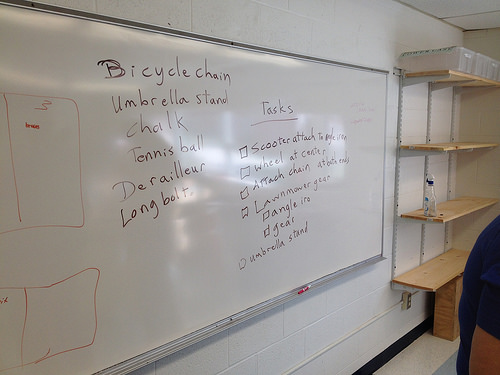 Bicycle chain
Umbrella stand
Chalk
Tennis ball
Derailleur
Long bolt
Tasks
Scooter attach to angle iron
Wheel at center
Attach chain at both ends
Lawnmower gear
angle iro
gear
umbrella stand